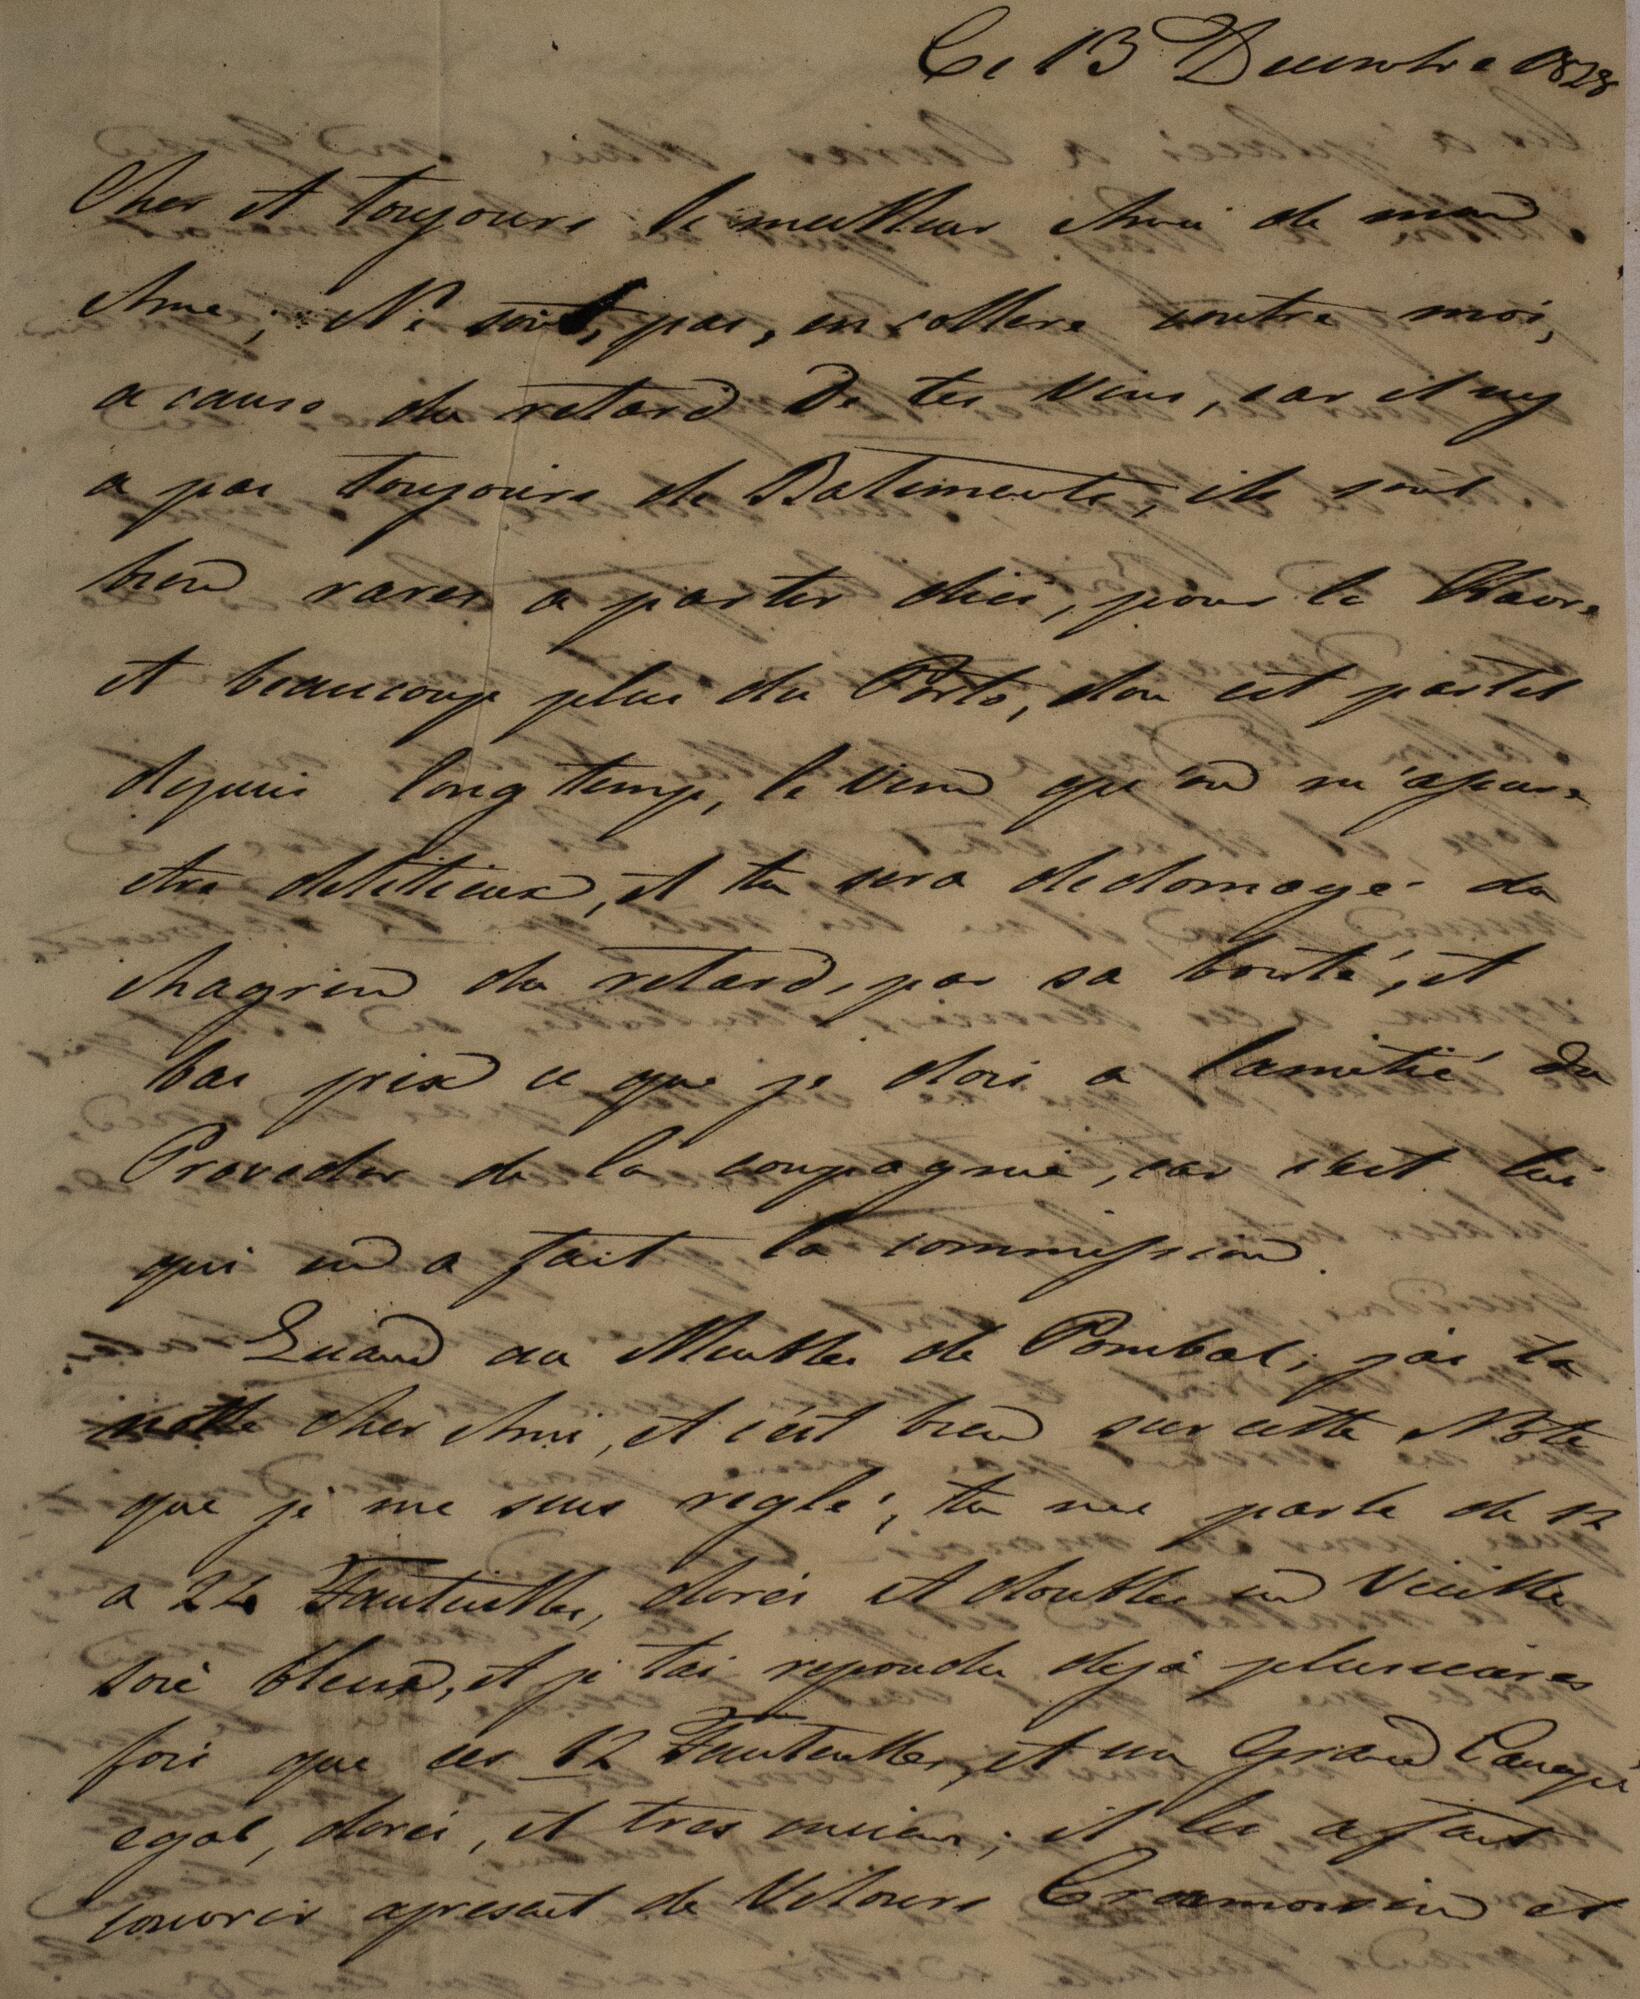 Ce 13 Decembre 1828
Cher et toujours le meilleur Ami de mon
Ame; Ne sois, pas, en collere contre moi,
a cause du retard de tes Vins, car il ny
a pas toujours de Batiments, ils sont
bien rares a partir dici, pour le Havre
et beaucoup plus du Porto, dou est partit
depuis long temp, le Vin qu'on m'assure
etre delitieux, et tu sera dedomagé du
chagrin du retard, par sa bonté, et
bas prix ce que je dois a lamitié du
Provedor de la compagnie, car cest lui
qui en a fait la commission.
Quand au Meubles de Pombal; jai ta
notte cher Ami, et c'est bien sur cette Note
que je me suis reglé; tu me parle de 12
a 24 Fauteulles, dorés et doubles en Vieille
soie bleux, et je tai repondu dejá plusieures
fois que ces 12 Fauteulles, et un Grand Canapé
egal, dorés, et tres ancien; il les a fait
couvrir apresent de Velours Cramoisin et